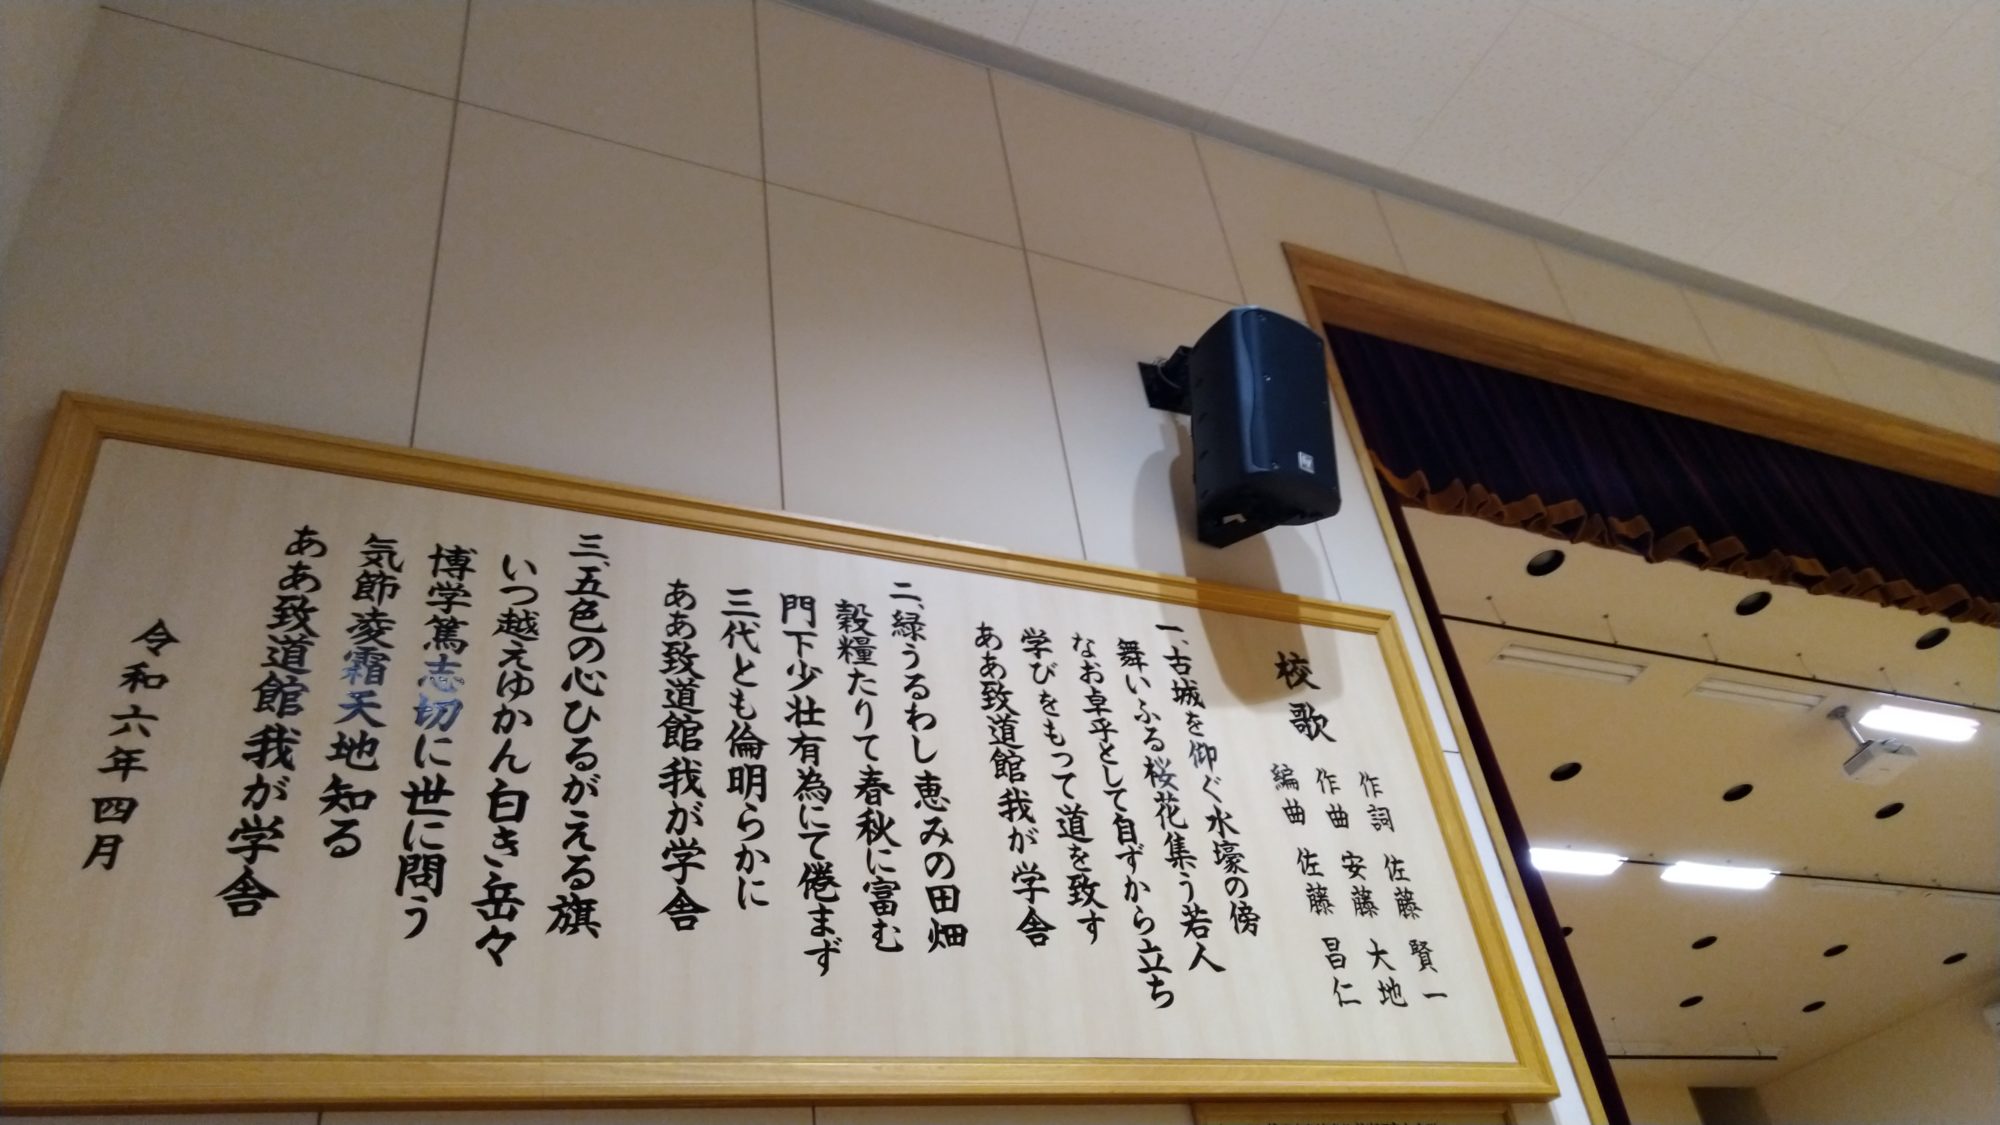 校歌
作詞 佐藤 賢一
作曲 安藤 大地
編曲 佐藤 昌仁
一、古城を仰ぐ水壕の傍
舞いふる桜花集う若人
なお卓乎として自ずから立ち
学びをもって道を致す
ああ致道館我が学舎
二、緑うるわし恵みの田畑
穀糧たりて春秋に富む
門下少壮有為にて倦まず
三代とも倫明らかに
ああ致道館我が学舎
三、五色の心ひるがえる旗
いつ越えゆかん白き岳々
博学篤志切に世に問う
気節凌霜天地知る
ああ致道館我が学舎
令和六年四月